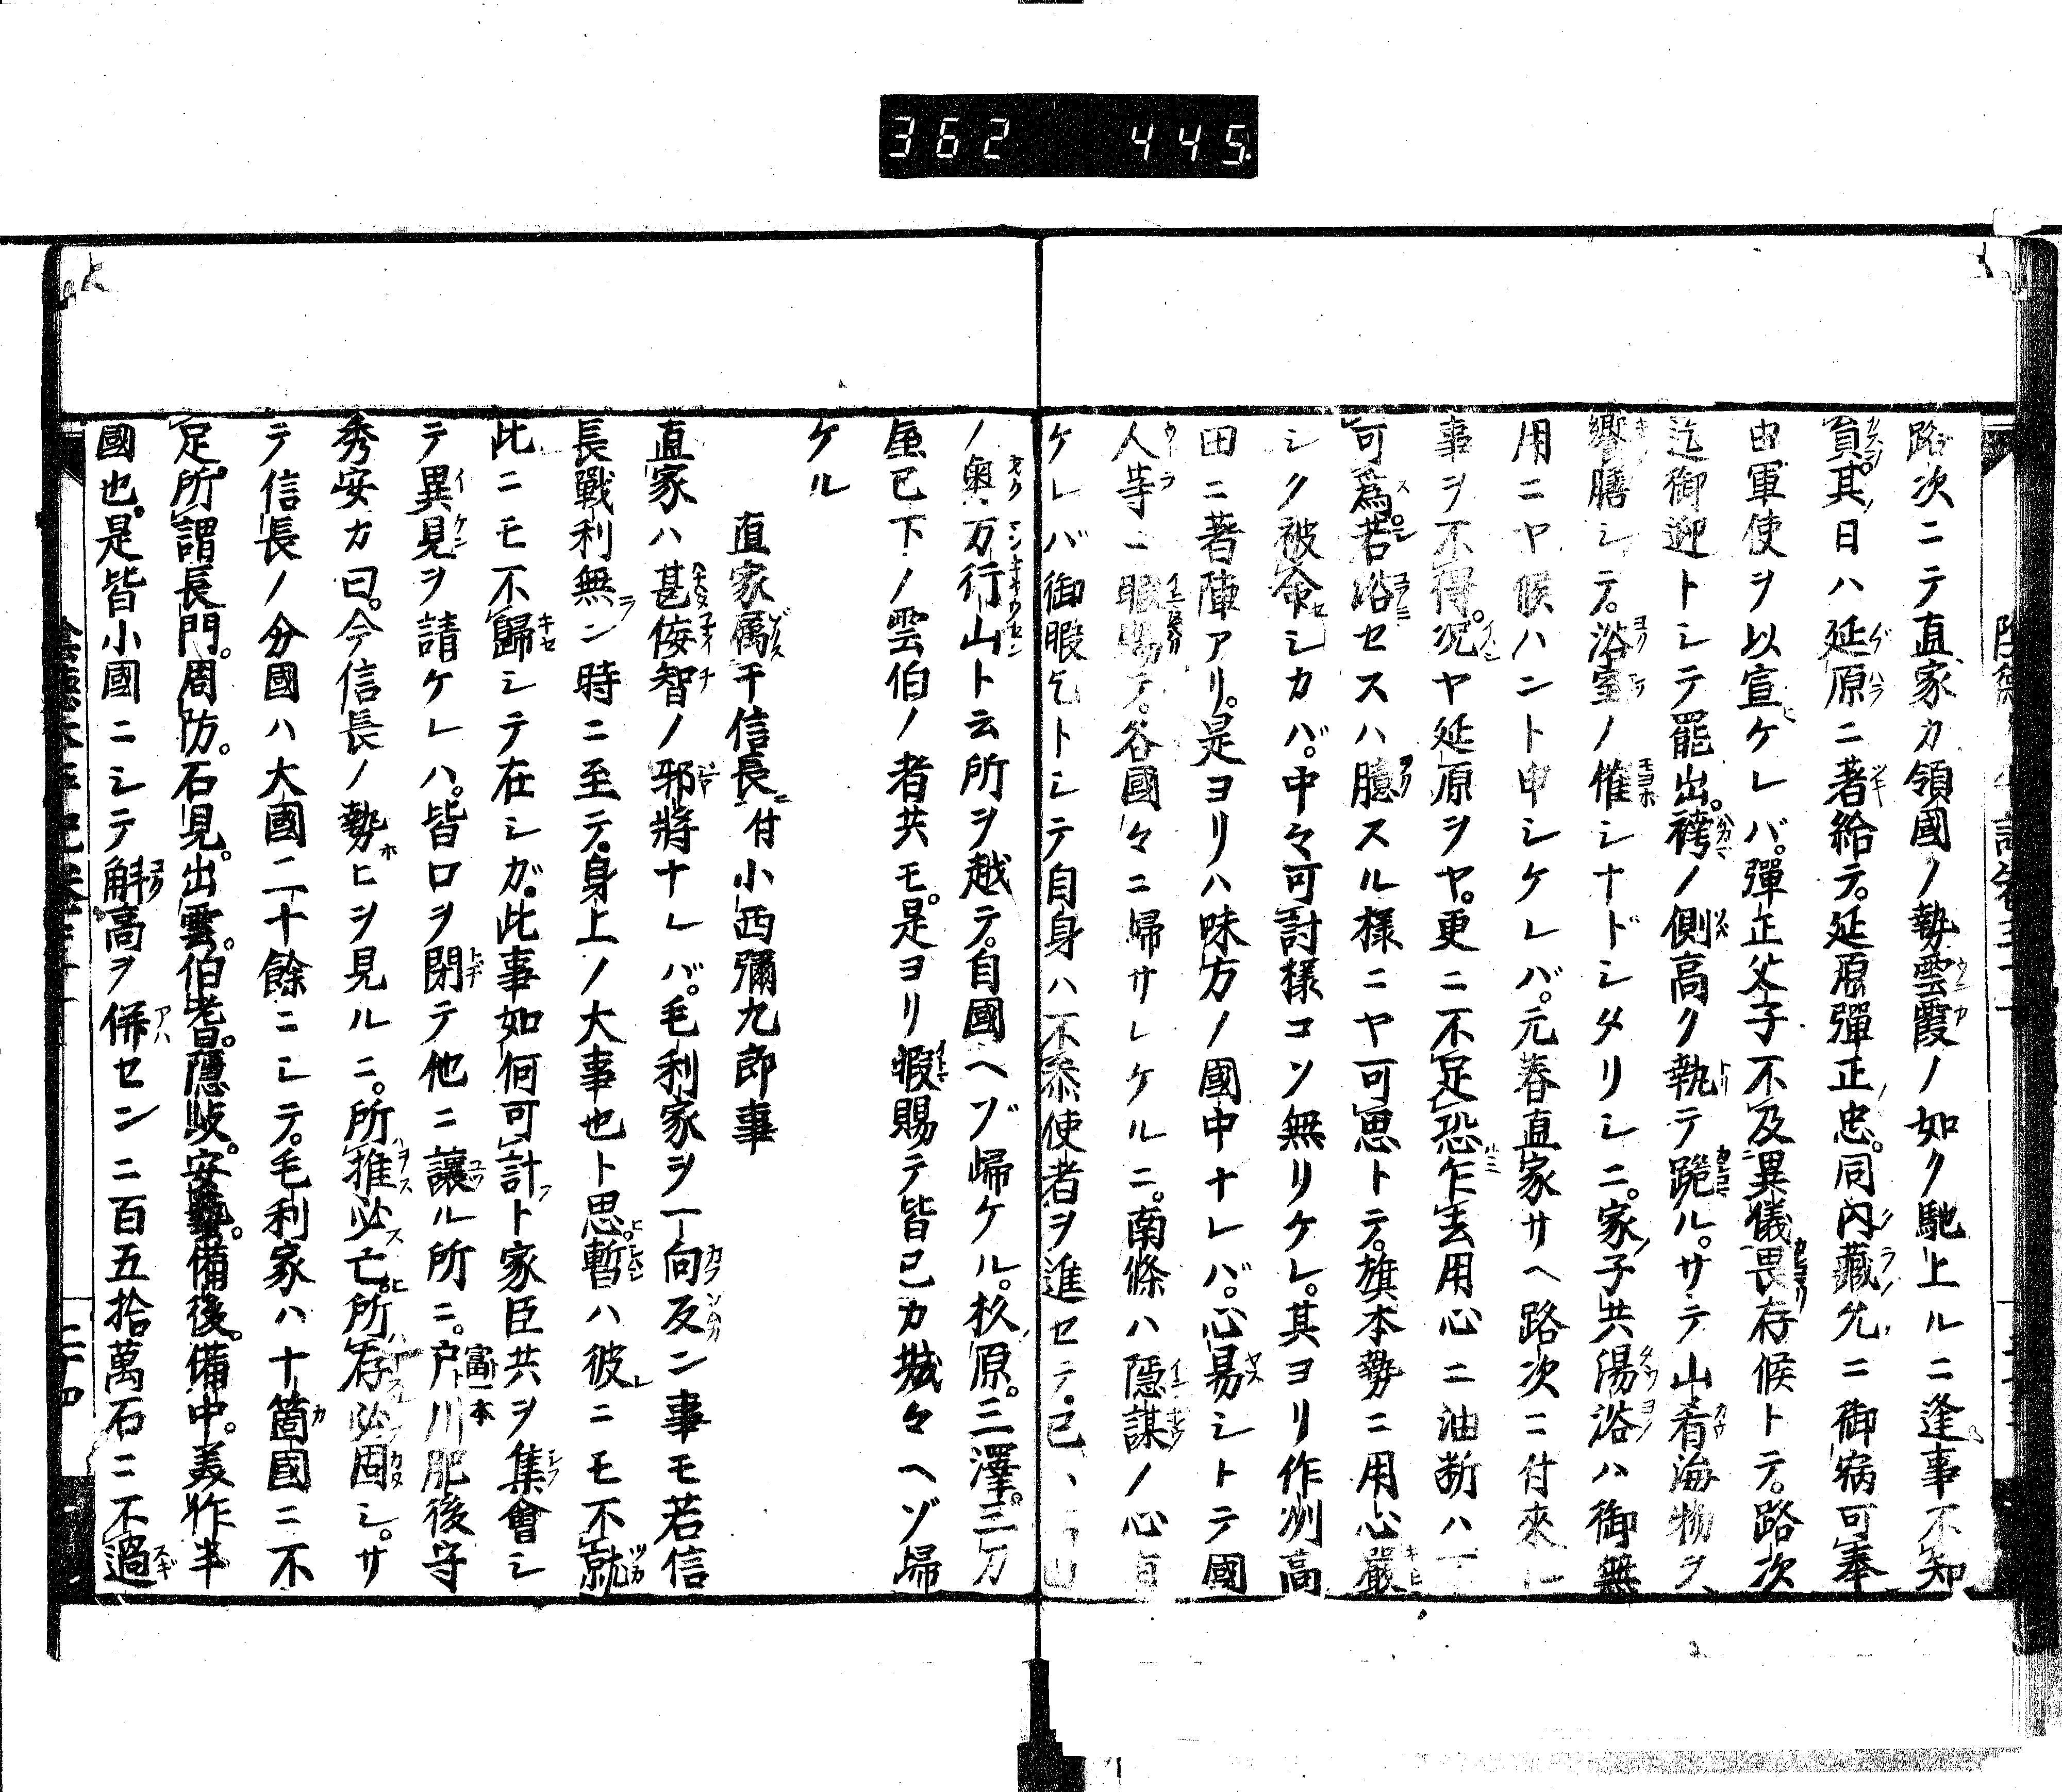 362 445
路次ニテ直家カ領國ノ勢雲霞ノ如ク馳上ルニ逢事不知
員其日ハ延原ニ著給テ延原彈正忠同内藏允ニ御病可奉
由軍使ヲ以宣ケレバ彈正父子不及異儀畏存候トテ路次
迄御迎トシテ罷出袴ノ側高ク執テ跪ルサテ山肴海物ヲ
饗膳シテ浴室ノ惟シナドシタリシニ家子共湯浴ハ御無
用ニヤ候ハント申シケレバ元春直家サヘ路次ニ付來
事ヲ不得況ヤ延原ヲヤ更ニ不足恐乍去用心ニ油断ハ不
可爲若浴セスハ臆スル樣ニヤ可思トテ旗本勢ニ用心嚴
シク被命シカバ中々可討樣コソ無リケレ其ヨリ作州高
田ニ著陣アリ是ヨリハ味方ノ國中ナレバ心易シトテ國
人等ニ暇賜テ各國々ニ歸サレケルニ南條ハ隱謀ノ心有
ケレバ御暇乞トシテ自身ハ不參使者ヲ進セテ己
ノ奥万行山ト云所ヲ越テ自國ヘゾ歸ケル杉原三澤三刀
虽已下ノ雲伯ノ者共モ是ヨリ暇賜テ皆己カ城々ヘゾ歸
ケル
直家属于信長付小西彌九郎事
直家ハ甚侫智ノ邪將ナレバ毛利家ヲ一向反ン事モ若信
長戰利無ン時ニ至テ身上ノ大事也ト思暫ハ彼ニモ不就
此ニモ不歸シテ在シガ此事如何可計ト家臣共ヲ集會シ
テ異見ヲ請ケレハ皆口ヲ閉テ他ニ讓ル所ニ戸川肥後守
富一本
秀安カ曰今信長ノ勢ヒヲ見ルニ所推必亡所存必固シサ
テ信長ノ分國ハ大國二十餘ニシテ毛利家ハ十箇國ニ不
足所謂長門周防石見出雲伯耆隱岐安藝備後備中美作半
國也是皆小國ニシテ斛高ヲ併センニ百五拾萬石ニ不過